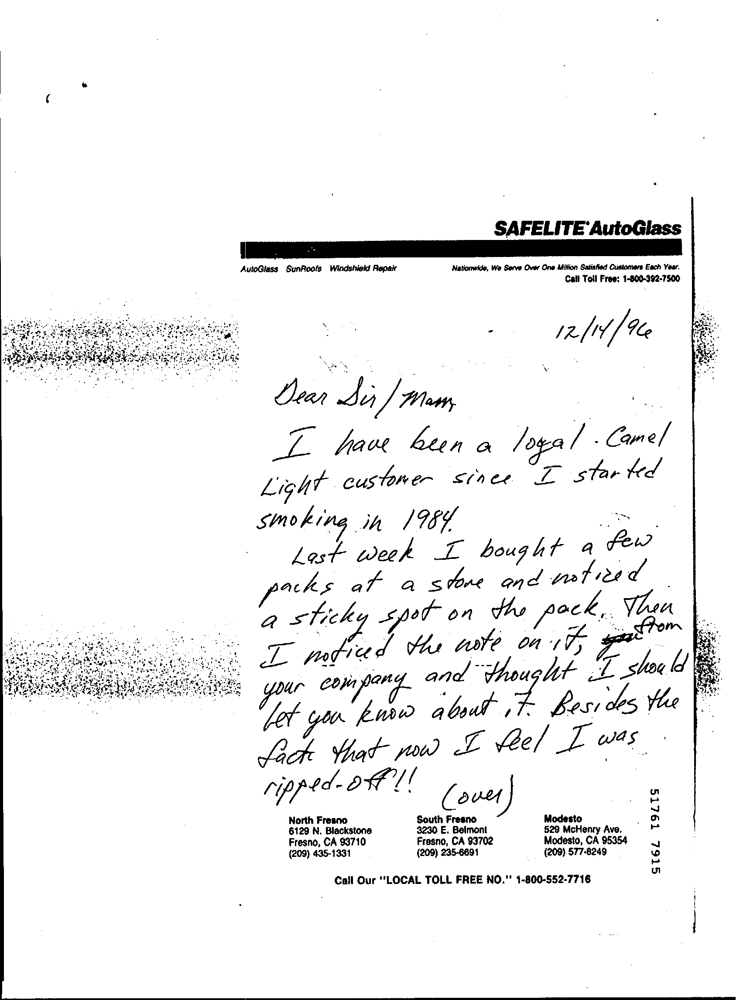 SAFELITE® AutoGlass
AutoGlass SunRoofs Windshield Repair
Nationwide, We Serve Over One Million Satisfied Customers Each Year.
Call Toll Free: 1-800-392-7500
12/14/96
Dear Sir/Mam,
I have been a loyal Camel
Light customer since I started
smoking in 1984.
Last week I bought a few
packs at a store and noticed
a sticky spot on the pack. Then
I noticed the note on it, from
your company and thought I should
let you know about it. Besides the
fact that now I feel I was
ripped-off!!
(over)
North Fresno
6129 N. Blackstone
Fresno, CA 93710
(209) 435-1331
South Fresno
3230 E. Belmont
Fresno, CA 93702
(209) 235-6691
Modesto
529 McHenry Ave.
Modesto, CA 95354
(209) 577-8249
Call Our "LOCAL TOLL FREE NO." 1-800-552-7716
51761 7915